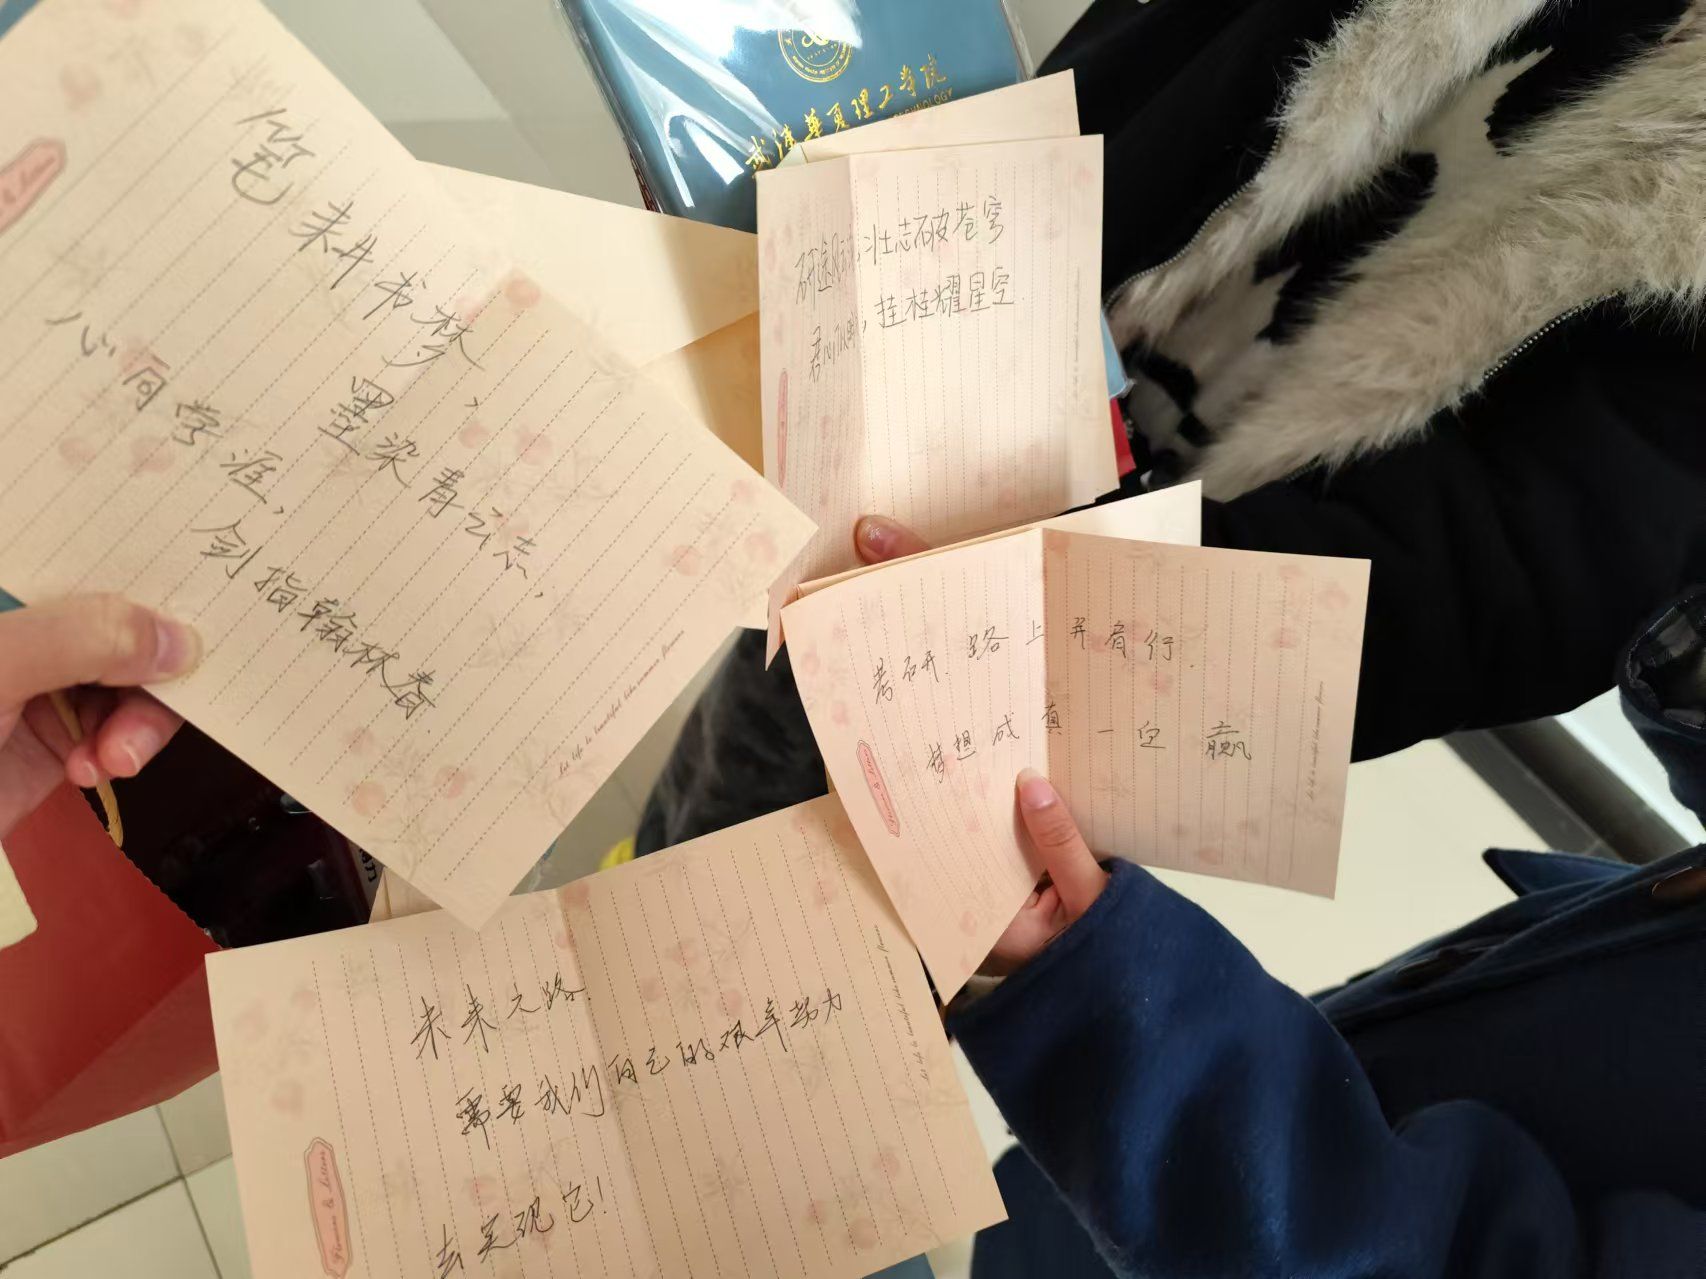 武汉华夏理工学院
笔来开书梦，
墨染青云志，
心同学涯，
剑指翰林春。
壮志破苍穹
，挂桂耀星空.
考研路上并肩行.
梦想成真一定赢
未来之路.
需要我们自己的艰辛努力
去实现它！
Let life be beautiful like summer flowers
Let life be beautiful like summer flowers
Let life be beautiful like summer flowers
Flowers & Letters